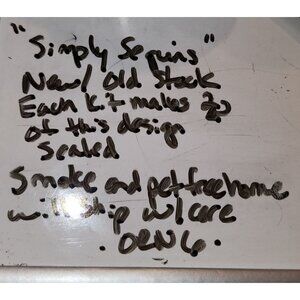 "Simply Sequins"
New/Old Stock
Each Kit makes 20
of this design
Sealed
Smoke and pet free home
will ship w/care